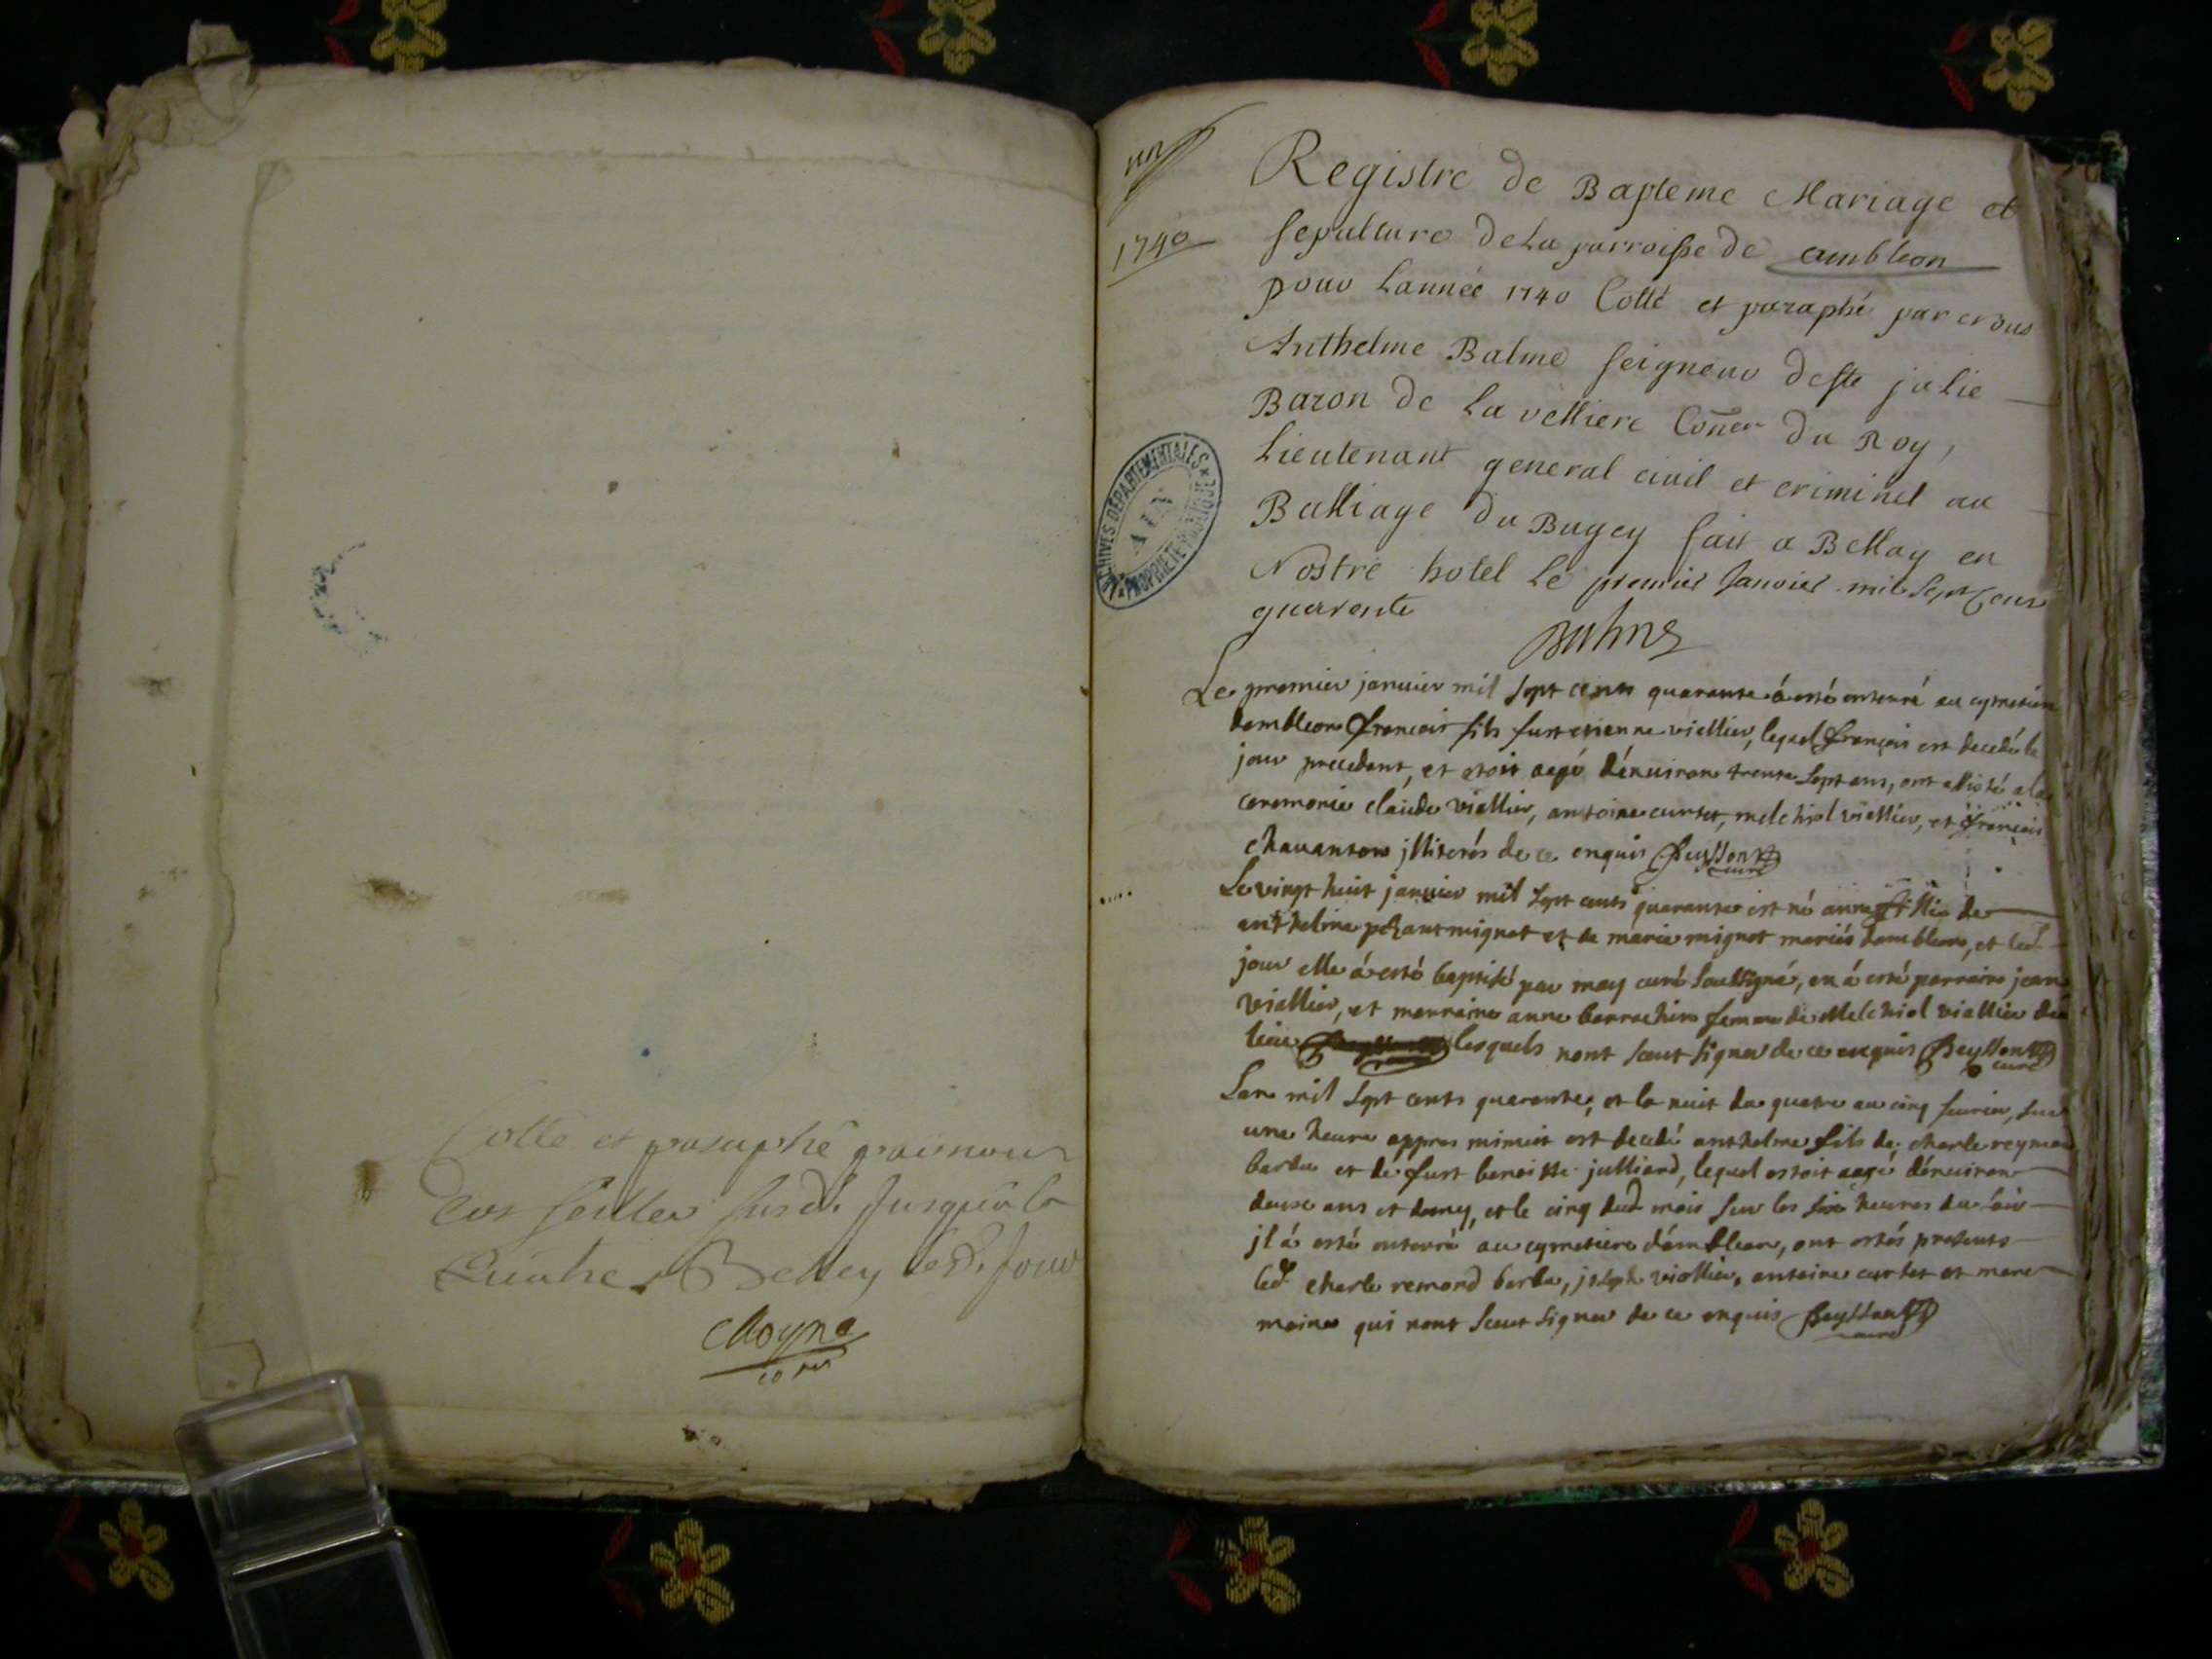 Cotté et paraphé par nous
les feuilles susd. jusqu'à la
Belley led. jour
Moyne
1740
ARCHIVES DÉPARTEMENTALES
AIN
PROPRIÉTÉ PUBLIQUE
Registre de Bapteme Mariage et
sepulture de La parroisse de ambleon
pour Lannée 1740 Cotté et paraphé par nous
Anthelme Balme seigneur de ste julie
Baron de La velliere Coner du Roy,
Lieutenant general civil et criminel au
Balliage du Bugey fait a Bellay en
Nostre hotel Le premier Janvier mil Sept Cens
quarente
Balme
Le premier janvier mil sept cents quarante á esté enterré au cymetiere
dambleon françois fils fust etienne viallier, lequel françois est decedé le
jour precedent, et etoit aagé dénuiron trente sept ans, ont assisté a la
ceremonie claude viallier, antoine curtet, melchiol viallier, et françois
chauanton illiterés de ce enquis Beysson
curé
Le vingt huit januier mil sept cents quarante est né anne fillie de
anthelme pchantmignot et de marie mignot mariés dambleon, et led.
jour elle á esté baptisé par moy curé soussigné, en á esté parrain jean
viallier, et marraine anne berrachin femme de Melchiol viallier
lesquels nont sceut signer de ce enquis Beysson
curé
Lan mil sept cents quarante, et la nuit du quatre au cinq feurier, sur
une heure appres minuit est decedé anthelme fils de charle reymon
barbe et de fust benoitte julliard, lequel estoit aagé dénuiron
douse ans et demy, et le cinq dud. mois sur les six heures du soir
jl á esté enterré au cymetiere dámbleon, ont estés presents
led. charle remond barbe, joseph viallier, antoine curtet et marc
moine qui nont sceut signer de ce enquis Beysson
curé